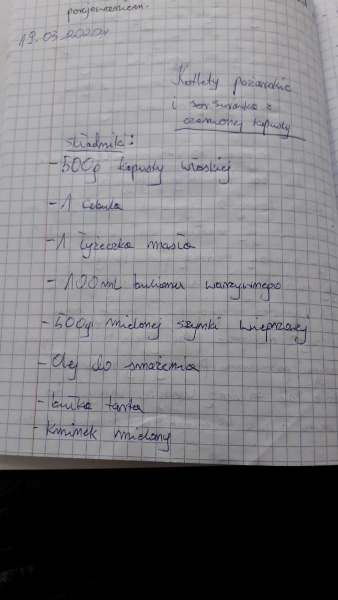 19.03.2020r
Kotlety pożarskie
i sos surówka z
czerwonej kapusty
składniki:
- 500g kapusty włoskiej
- 1 cebula
- 1 łyżeczka masła
- 100ml bulionu warzywnego
- 500g mielonej szynki wieprzowej
- Olej do smażenia
- bułka tarta
- kminek mielony